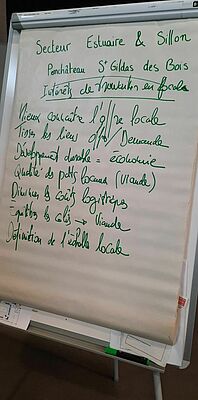 Secteur Estuaire & Sillon
Ponchâteau St Gildas des Bois
Intérêts de
Mieux connaître l'offre locale
les liens offre / Demande
Développement durable = économie
Qualité des petits (Viande)
Diminuer les coûts logistiques
les → Viande
Définition de l'échelle locale